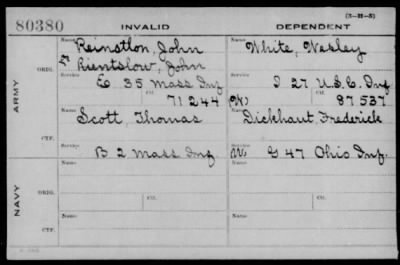 (3-H-5)
80380 INVALID DEPENDENT
ARMY
ORIG.
Name: Reinstlon, John
Rientslow, John
Service: E 35 Mass Inf
Ctf. 71244
Name: White, Wesley
Service: I 27 U.S.C. Inf
(W) Ctf. 87537
CTF.
Name: Scott, Thomas
Service: B 2 Mass Inf
Name: Dickhaut, Frederick
Service: (W) G 47 Ohio Inf.
NAVY
ORIG.
Name: Name:
Service: Ctf. Service: Ctf.
CTF.
Name: Name:
Service: Service: